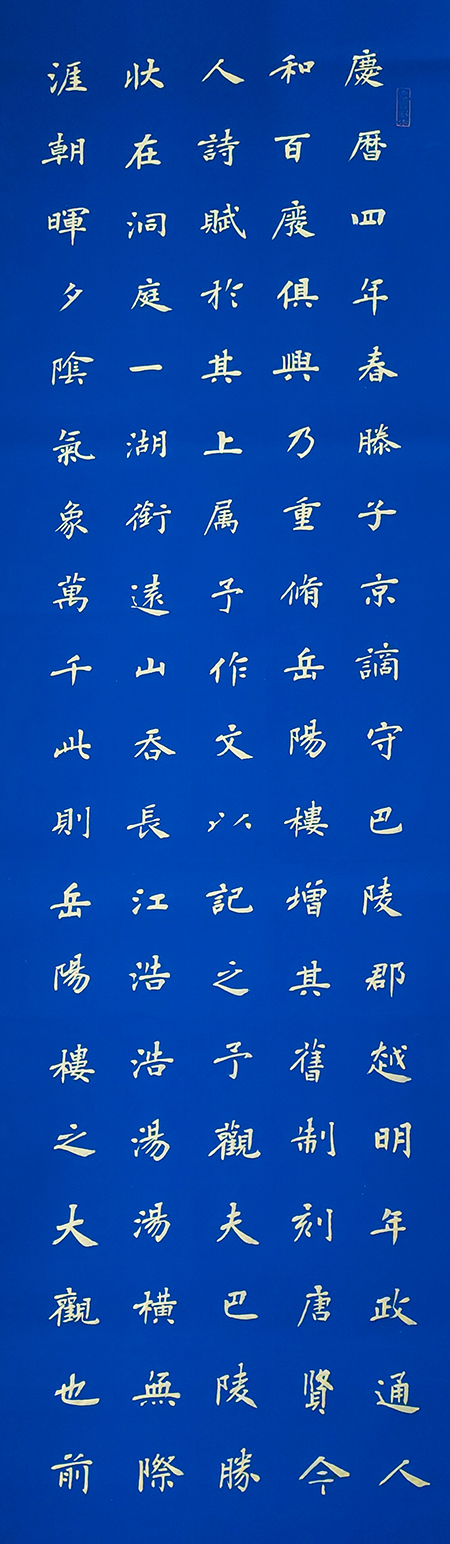 慶曆四年春滕子京謫守巴陵郡越明年政通人
和百廢俱興乃重脩岳陽樓增其舊制刻唐賢今
人詩賦於其上属予作文以記之予觀夫巴陵勝
狀在洞庭一湖銜遠山吞長江浩浩湯湯橫無際
涯朝暉夕陰氣象萬千此則岳陽樓之大觀也前